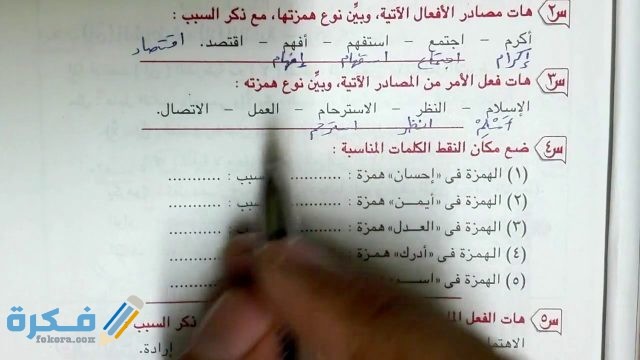 س٢ هات مصادر الأفعال الآتية، وبيِّن نوع همزتها، مع ذكر السبب :
أكرم – اجتمع – استفهم – أفهم – اقتصد. اقتصاد
إكرام اجتماع استفهام إفهام
س٣ هات فعل الأمر من المصادر الآتية، وبيِّن نوع همزته :
الإسلام – النظر – الاسترحام – العمل – الاتصال.
أَسْلِمْ انظر استرحم
س٤ ضع مكان النقط الكلمات المناسبة :
(١) الهمزة فى «إحسان» همزة : ........... سبب : ...........
(٢) الهمزة فى «أيمــن» همزة : ...........
(٣) الهمزة فى «العـدل» همزة : سبب : ...........
(٤) الهمزة فى «أدرك» همزة : ...........
(٥) الهمزة فى
س٥ هات الفعل ذكر السبب
إرادة.
فكرة
fokora.com